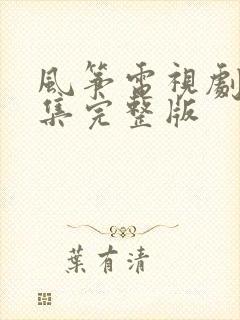 風箏電視劇
集完整版
葉有清